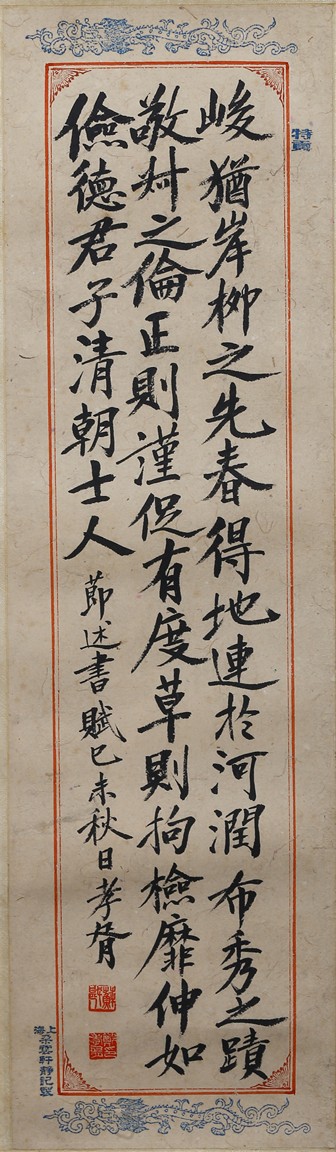 峻猶岸柳之先春得地連於河潤布秀之蹟
敬叔之倫正則謹促有度草則拘檢靡伸如
儉德君子清朝士人
節述書賦己未秋日孝胥
上海朵雲軒靜記製